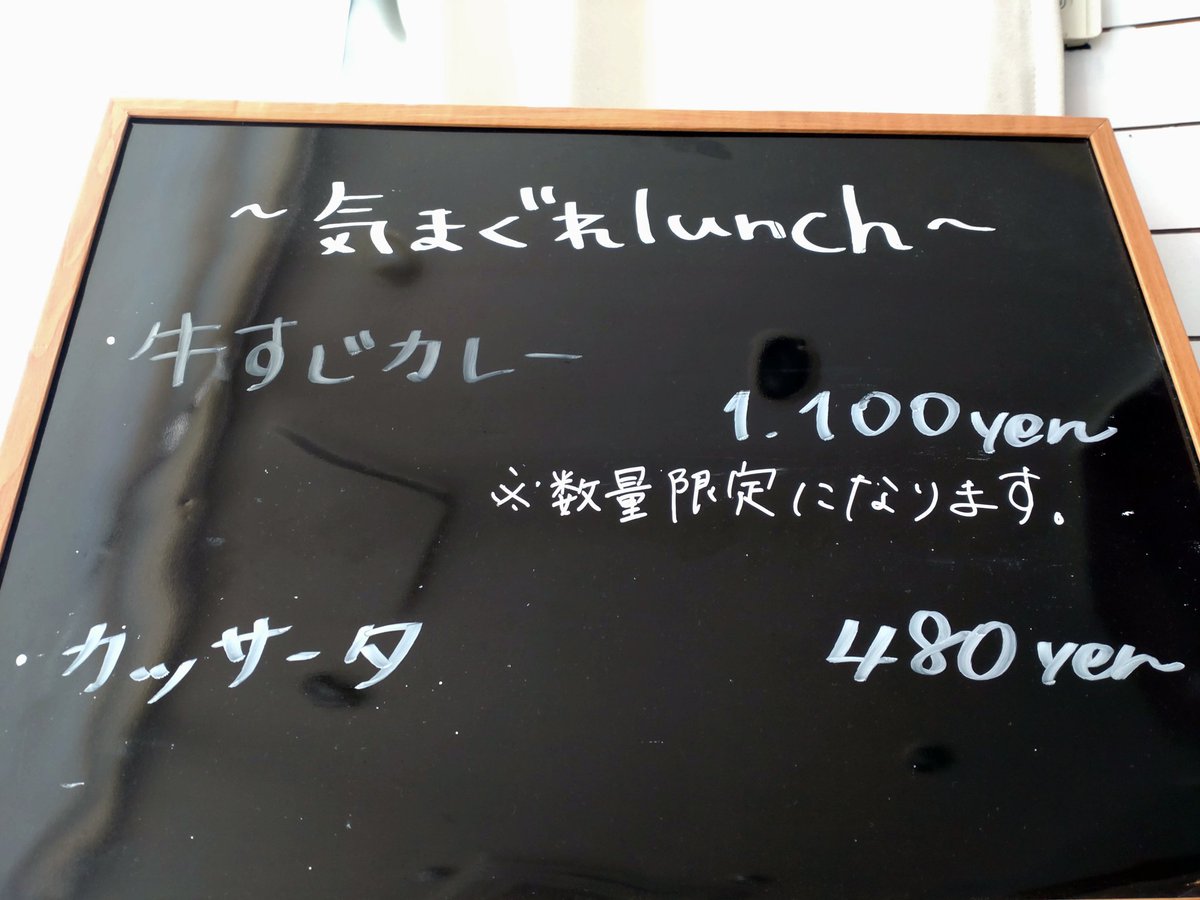 ～気まぐれlunch～
・牛すじカレー
1.100yen
※数量限定になります。
・カッサータ 480yen